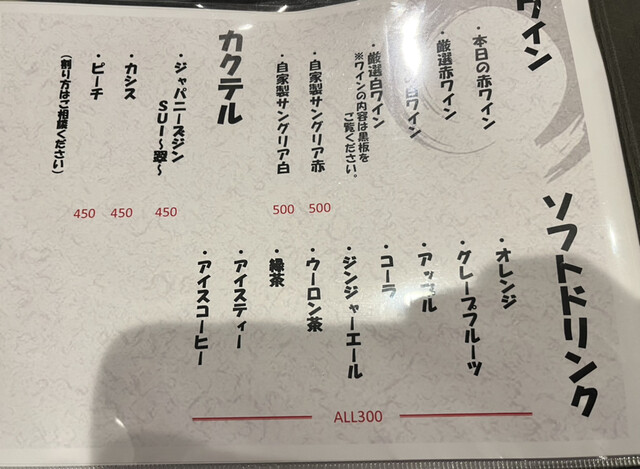 ワイン
・本日の赤ワイン
・厳選赤ワイン
白ワイン
・厳選白ワイン
※ワインの内容は黒板を
ご覧ください。
・自家製サングリア赤 500
・自家製サングリア白 500
カクテル
・ジャパニーズジン
SUI〜翠〜 450
・カシス 450
・ピーチ 450
(割り方はご相談ください)
ソフトドリンク
・オレンジ
・グレープフルーツ
・アップル
・コーラ
・ジンジャーエール
・ウーロン茶
・緑茶
・アイスティー
・アイスコーヒー
ALL300